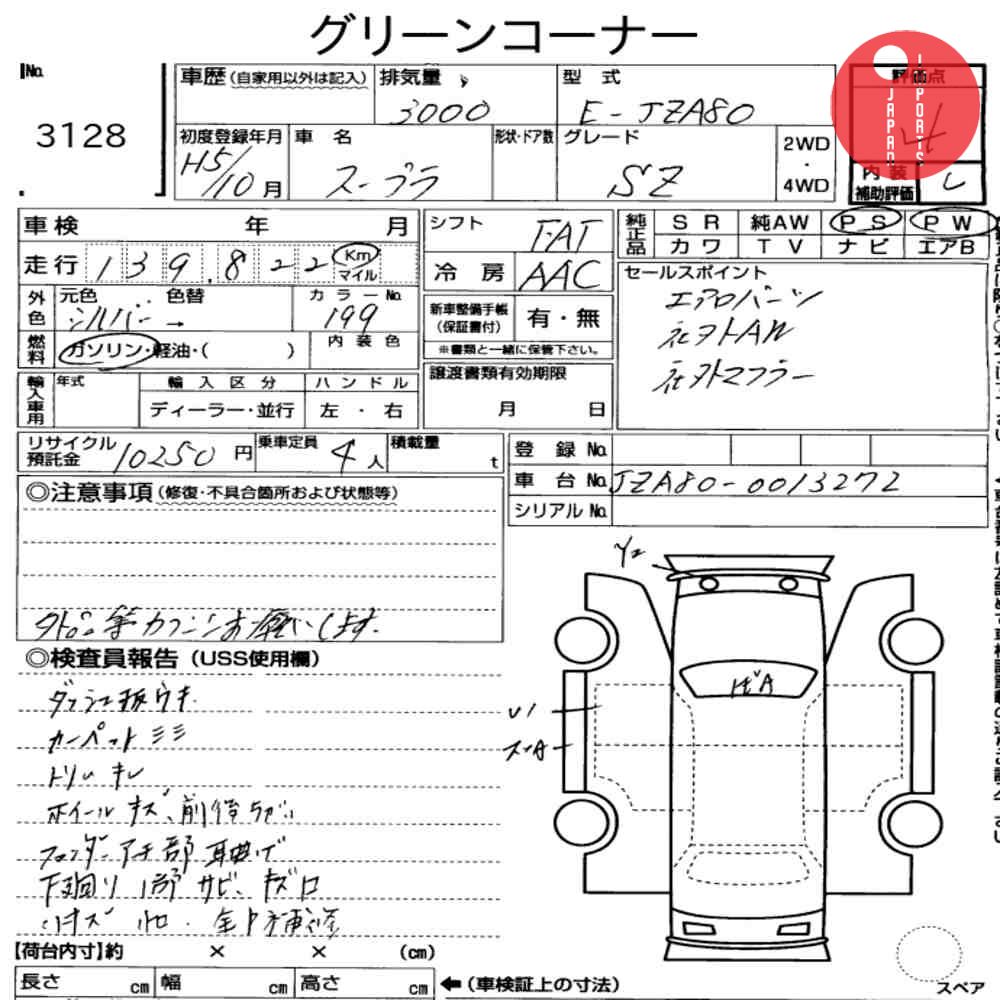 グリーンコーナー
No.
3128
車歴(自家用以外は記入)
排気量
3000
型 式
E-JZA80
評価点
4
JAPAN IMPORTS
初度登録年月
H5/10月
車 名
スープラ
形状・ドア数
グレード
SZ
2WD
・
4WD
内 装
補助評価
C
車検 年 月
走行 139,822 Km マイル
シフト
FAT
冷 房
AAC
純正品
SR 純AW PS PW
カワ TV ナビ エアB
セールスポイント
エアロパーツ
社外AW
社外マフラー
外色
元色
シルバー→
色替
カラーNo.
199
燃料
ガソリン・軽油・( )
内 装 色
新車整備手帳
(保証書付)
有・無
※書類と一緒に保管下さい。
輸入車用
年式
輸 入 区 分
ディーラー・並行
ハ ン ド ル
左 ・ 右
譲渡書類有効期限
月 日
リサイクル
預託金
10250円
乗車定員
4人
積載量
t
登 録 No.
車 台 No. JZA80-0013272
シリアル No.
◎注意事項(修復・不具合箇所および状態等)
外品等カクニンお願いします.
◎検査員報告(USS使用欄)
ダッシュ板ウキ
カーペットシミ
トリムキレ
ホイールキズ、前後ちがい
フェンダーアーチ部耳曲げ
下廻り1部サビ、キズ
Y2
U1
【荷台内寸】約 × × (cm)
長さ cm 幅 cm 高さ cm
←(車検証上の寸法)
スペア